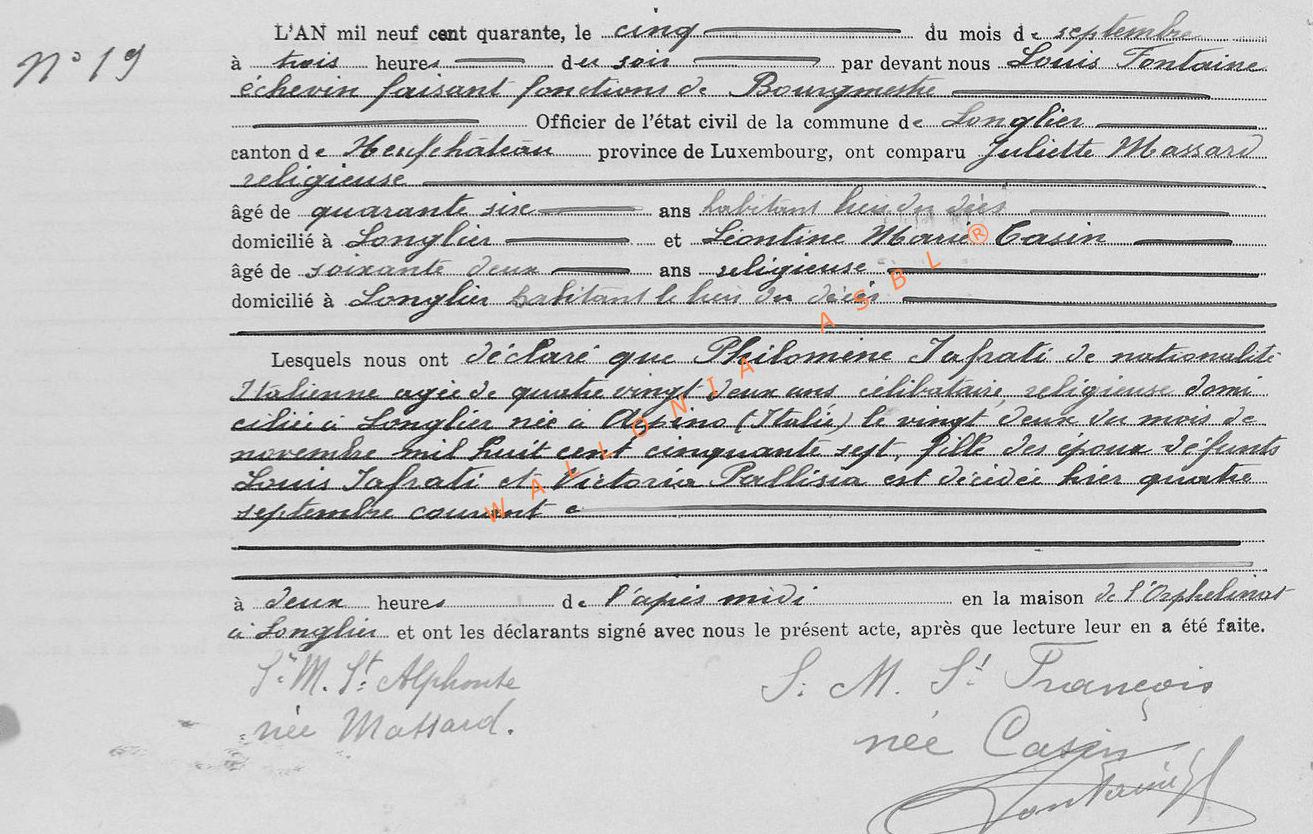 N° 19
L'AN mil neuf cent quarante, le cinq du mois de septembre
à trois heures du soir par devant nous Louis Fontaine
échevin faisant fonctions de Bourgmestre
Officier de l'état civil de la commune de Longlier
canton de Neufchâteau province de Luxembourg, ont comparu Juliette Massard
religieuse
âgé de quarante six ans habitant lieu du décès
domicilié à Longlier et Léontine Marie Casin
âgé de soixante deux ans religieuse
domicilié à Longlier habitant le lieu du décès
Lesquels nous ont déclaré que Philomène Iafrati de nationalité
Italienne agée de quatre vingt deux ans célibataire, religieuse domi
ciliée à Longlier née à (Italie) le vingt deux du mois de
novembre mil huit cent cinquante sept, fille des époux défunts
Louis Iafrati et Victoria Pallisia est décédée hier quatre
septembre courant
à deux heures de l'après midi en la maison de l'Orphelinat
à Longlier et ont les déclarants signé avec nous le présent acte, après que lecture leur en a été faite.
Sr M. St. Alphonse
née Massard.
S. M. St François
née Casin
Fontaine
WALLONIA ASBL ®